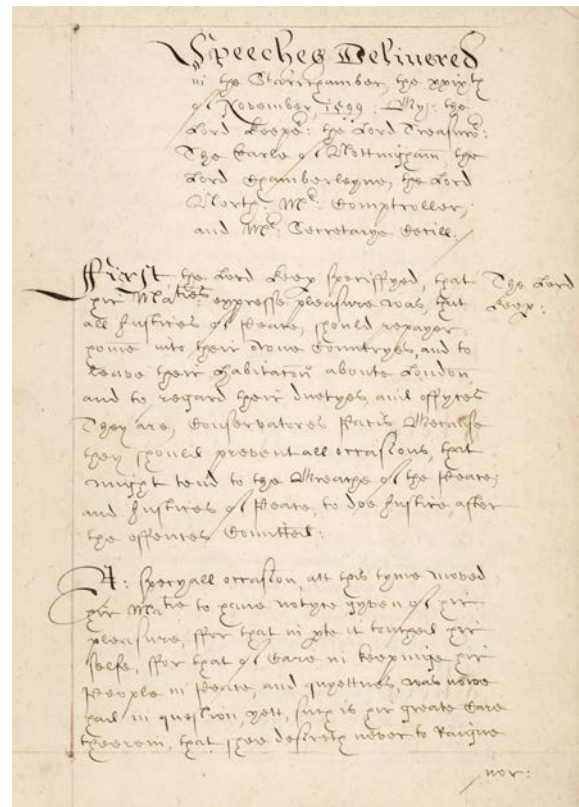 Speeches Delivered
in the Starrchamber, the xxixth
of November, 1599: By: the
Lord Keepr: the Lord Treasurer:
The Earle of Nottingham the
Lord Chamberleyne, the Lord
North: Mr: Comptroller,
and Mr: Secretarye Cecill:
First the Lord Keepr speciffyed, that
hir Maties: expresse pleasure was, that
all Justices of Peace, should repayer
home into their owne Countryes, and to
leave their habitacon aboute London,
and to regard their duetyes and offyces
They are, Conservatores Pacis, Because
they should prevent all occasions, that
might tend to the Breache of the Peace;
and Justices of Peace, to doe Justice, after
the offences Comitted:
The Lord
Keepr:
A: specyall occasion, att this tyme moved
hir Matie to have notyce gyven of hir
pleasure, ffor that in pte it touched hir
selfe, ffor that of Care in keepinge hir
People in Peace and quyettnes, was nowe
had in question, yett, such is hir greate Care
therein, that shee desireth never to Raigne
nor: